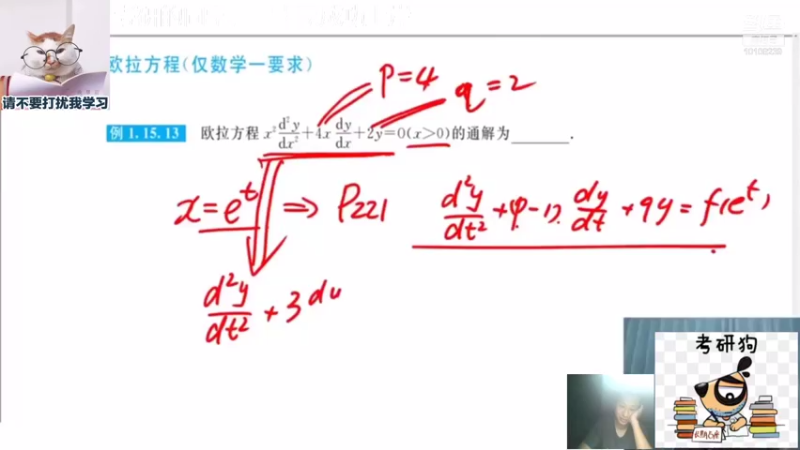 请不要打扰我学习
10108239
欧拉方程(仅数学一要求)
P=4
q=2
例 1.15.13 欧拉方程 x² d²y/dx² + 4x dy/dx + 2y = 0 (x>0) 的通解为______.
x=eᵗ ⇒ P221
d²y/dt² + (p-1) dy/dt + qy = f(eᵗ)
d²y/dt² + 3
考研狗